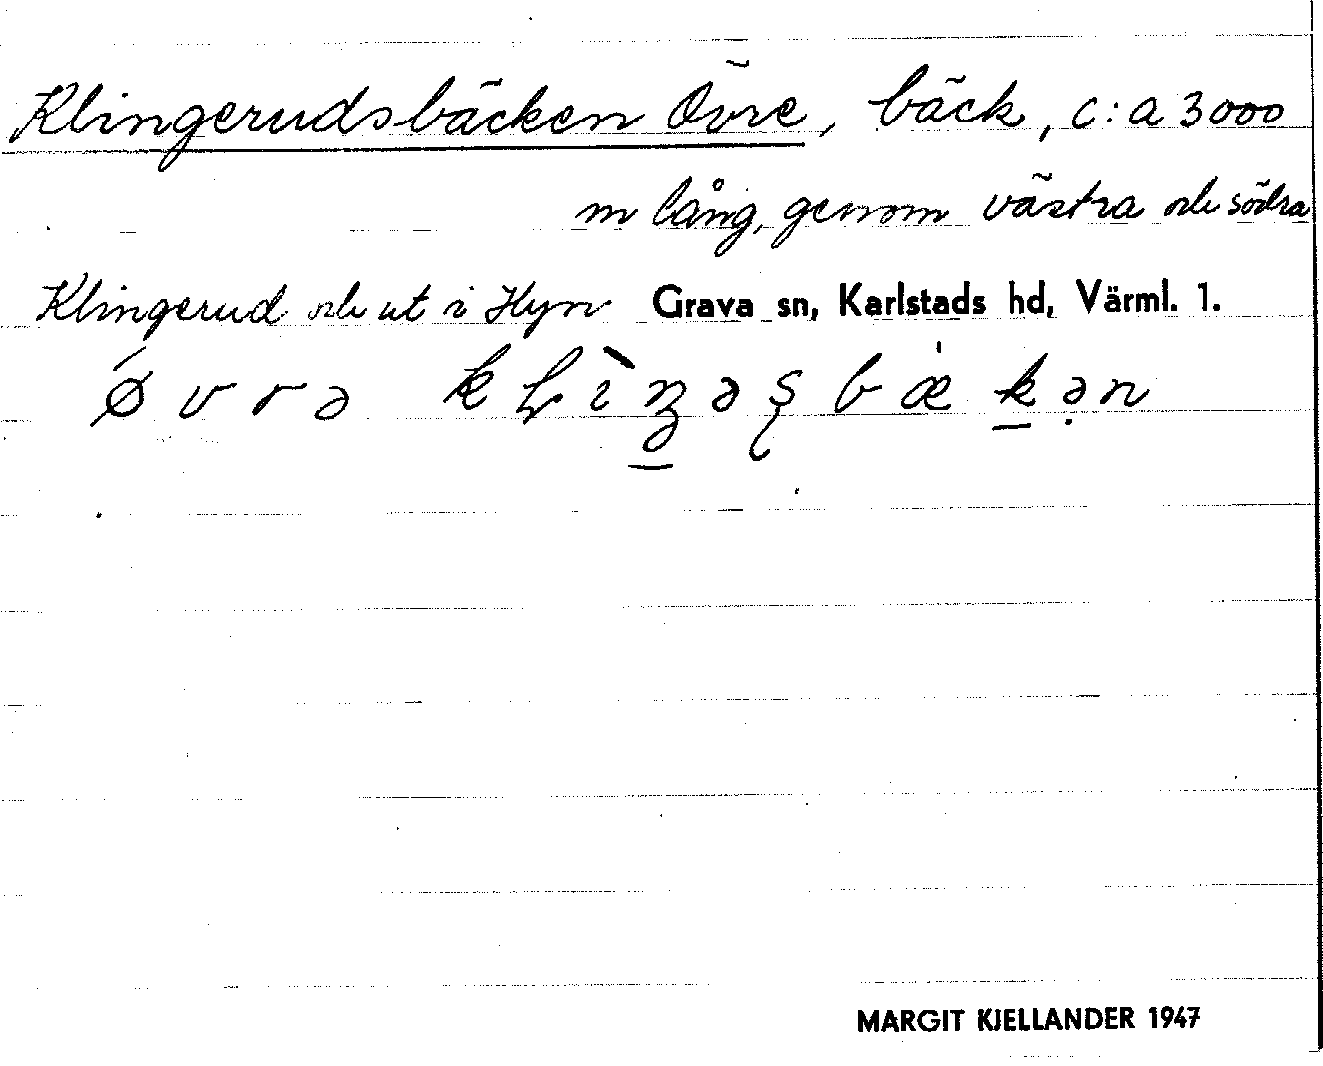 Klingerudsbäcken Övre, bäck, c:a 3000
m lång, genom västra och södra
Klingerud och ut i Hyn Grava sn, Karlstads hd, Värml. l.
MARGIT KJELLANDER 1947